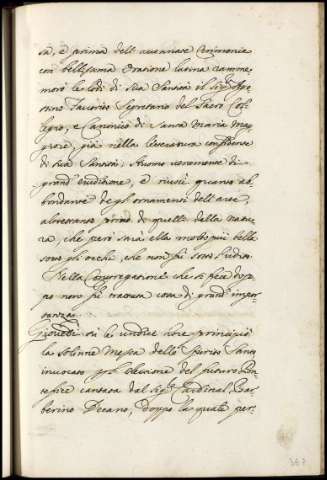 sa, e prima dell' avanzare Cerimonie
con bellissima Oratione latina ramme-
morò le lodi di Sua Santità il Sigr. Ago-
stino Favoriti Segretario del Sacro Col-
legio, e Canonico di Santa Maria Mag-
giore, già nella literatura confidente
di Sua Santità; Huomo veramente di
grand' eruditione, e riuscì quanto ab-
bondante degl' ornamenti dell' arte,
altretanto priva di quelli della natu-
ra, che però sarà ella molto più bella
sotto gli occhi, che non fù sotto l'udito.
Nella Congregatione che si fece dop-
po non fù trattata cosa di grand' impor-
tanza.
Giovedì sù le undice hore principiò
la solenne Messa dello Spirito Santo
invocato per l'elettione del futuro Pon-
tefice cantata dal Sigr. Cardinal Bar-
berino Decano, doppo la quale per-
367